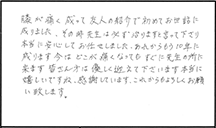 腰が痛く成って友人の紹介で初めてお世話に
成りました。その時先生は必ずなりますと言って下さり
本当に安心してお任せしました。あれからもう10年に
成ります今はどこが痛くなってもすぐに先生の所に
来ます皆さん方は優しく迎えて下さいます本当に
嬉しいですね、感謝しています。これからもよろしくお願
い致します。